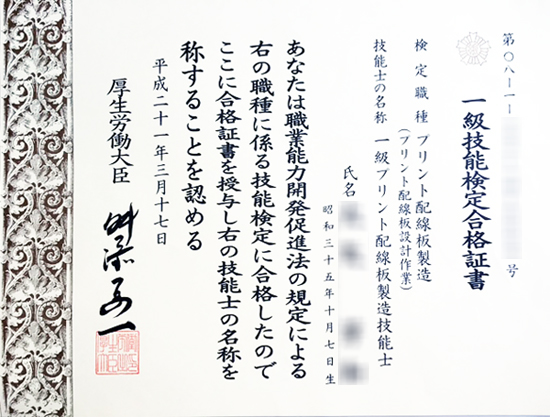 第〇八-一- 号
一級技能検定合格証書
検定職種 プリント配線板製造
(プリント配線板設計作業)
技能士の名称 一級プリント配線板製造技能士
氏名
昭和三十五年十月七日生
あなたは職業能力開発促進法の規定による
右の職種に係る技能検定に合格したので
ここに合格証書を授与し右の技能士の名称を
称することを認める
平成二十一年三月十七日
厚生労働大臣 舛添要一